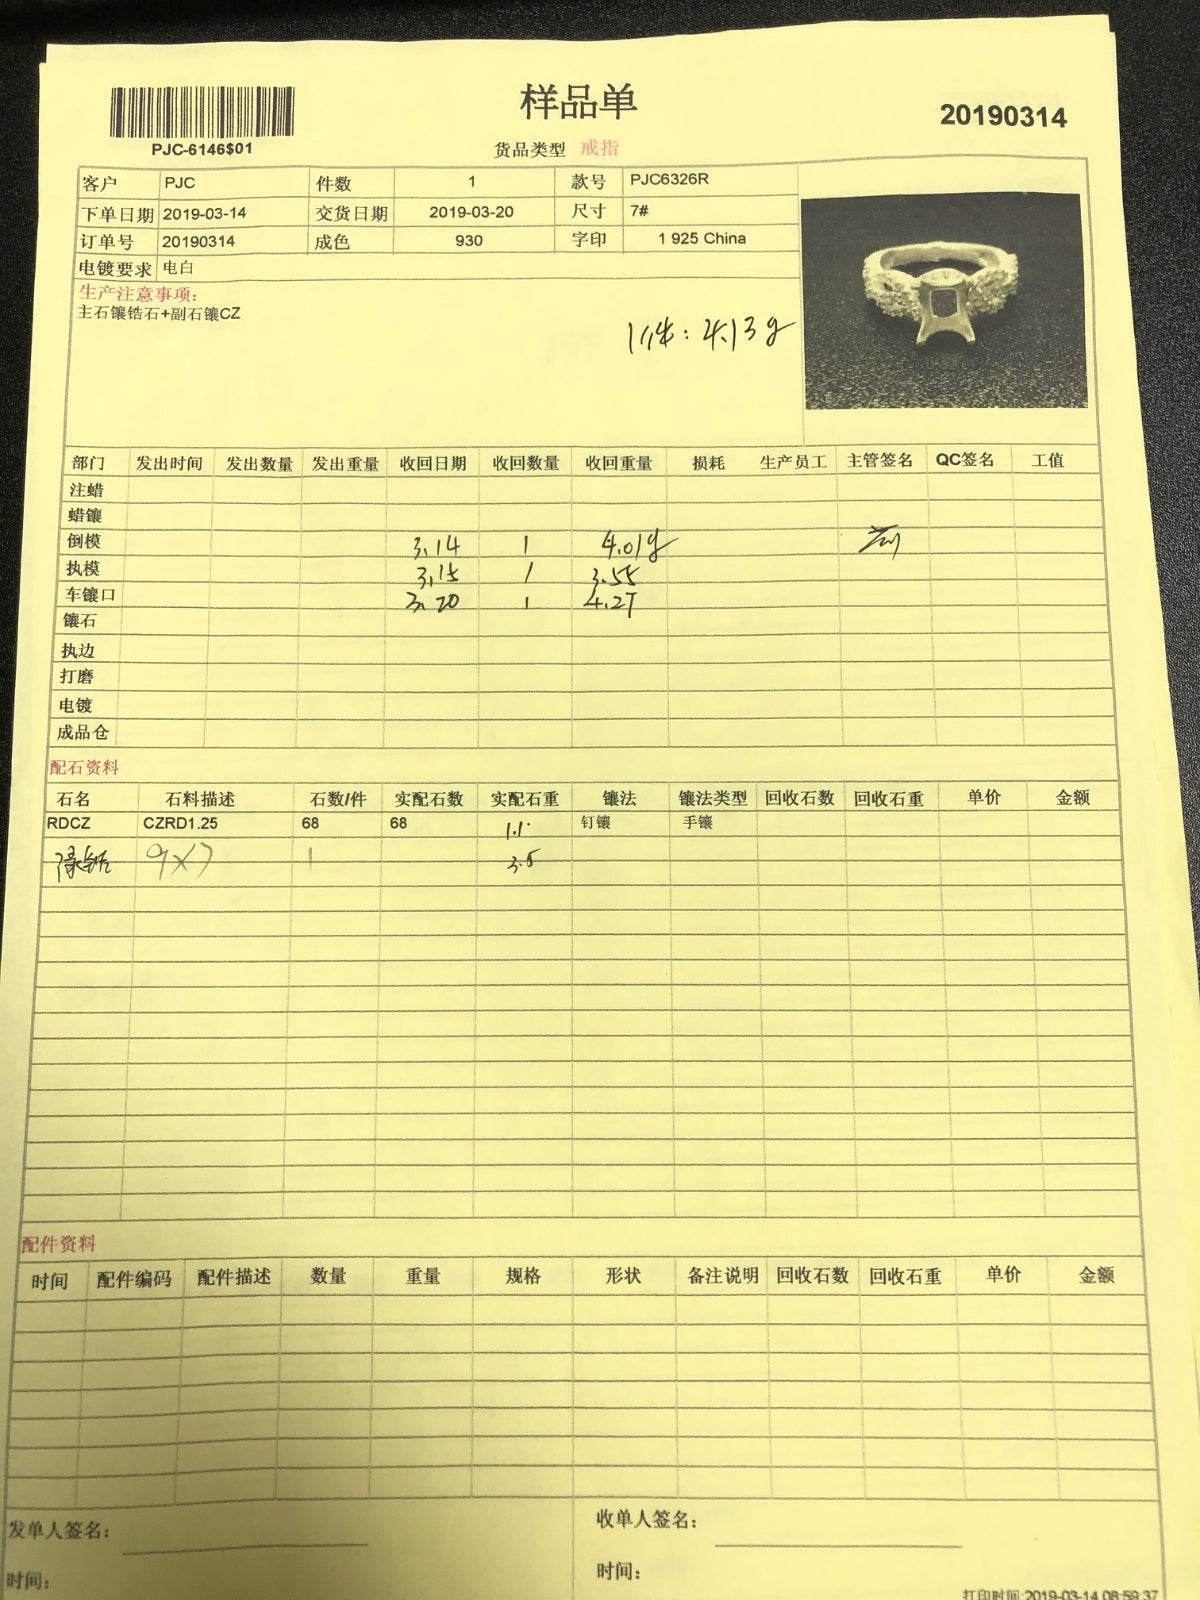 样品单
20190314
PJC-6146$01
货品类型 戒指
客户 PJC 件数 1 款号 PJC6326R
下单日期 2019-03-14 交货日期 2019-03-20 尺寸 7#
订单号 20190314 成色 930 字印 1 925 China
电镀要求 电白
生产注意事项:
主石镶锆石+副石镶CZ
1件: 4.13g
部门 发出时间 发出数量 发出重量 收回日期 收回数量 收回重量 损耗 生产员工 主管签名 QC签名 工值
注蜡
蜡镶
倒模 3.14 1 4.01g
执模 3.15 1 3.55
车镶口 3.20 1 4.27
镶石
执边
打磨
电镀
成品仓
配石资料
石名 石料描述 石数/件 实配石数 实配石重 镶法 镶法类型 回收石数 回收石重 单价 金额
RDCZ CZRD1.25 68 68 1.1 钉镶 手镶
9×7 1 3.5
配件资料
时间 配件编码 配件描述 数量 重量 规格 形状 备注说明 回收石数 回收石重 单价 金额
发单人签名:
收单人签名:
时间:
时间:
打印时间:2019-03-14 08:59:37